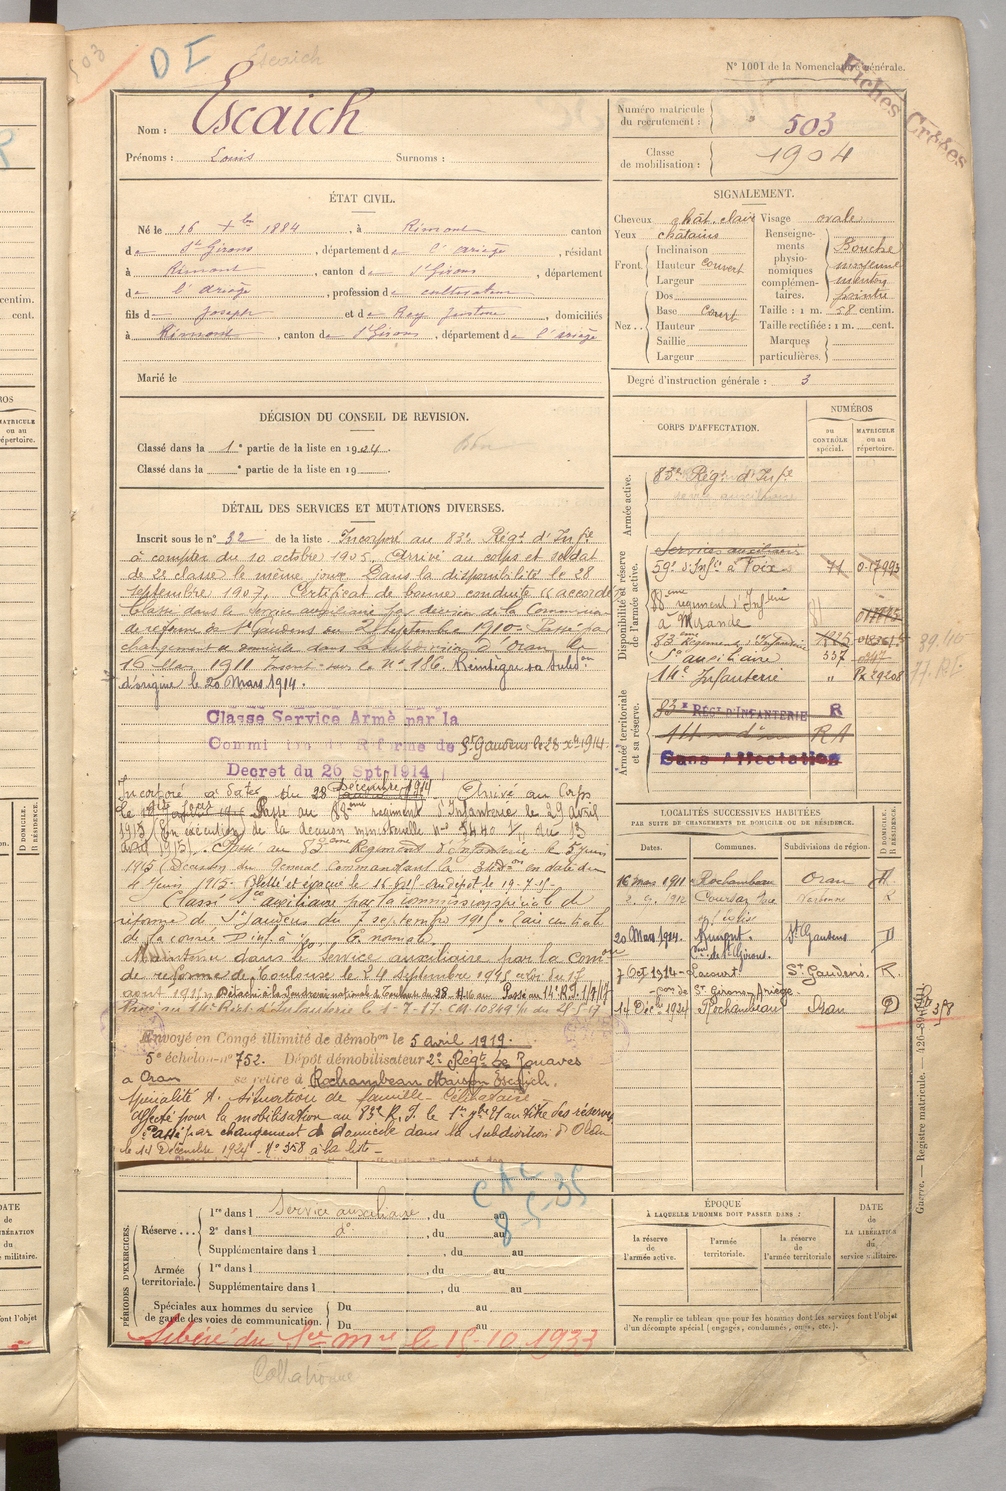 503
D I
Escaich
N° 1001 de la Nomenclature générale.
Fiches Créées
Nom : Escaich
Prénoms : Louis Surnoms :
Numéro matricule du recrutement : 503
Classe de mobilisation : 1904
ÉTAT CIVIL.
Né le 16 Xbre 1884, à Rimont canton
de St Girons, département de l'ariège, résidant
à Rimont, canton de St Girons, département
de l'ariège, profession de cultivateur
fils de Joseph et de Rey Justine, domiciliés
à Rimont, canton de St Girons, département de l'ariège
Marié le
SIGNALEMENT.
Cheveux chât. clair Visage ovale
Yeux châtains
Front. Inclinaison
Hauteur couvert
Largeur
Nez. Dos
Base Court
Hauteur
Saillie
Largeur
Renseignements physionomiques complémentaires. Bouche moyenne menton pointu
Taille : 1 m. 58 centim.
Taille rectifiée : 1 m. cent.
Marques particulières.
Degré d'instruction générale : 3
DÉCISION DU CONSEIL DE REVISION.
Classé dans la 1e partie de la liste en 1904.
Classé dans la e partie de la liste en 19
DÉTAIL DES SERVICES ET MUTATIONS DIVERSES.
Inscrit sous le n° 32 de la liste. Incorporé au 83e Régt d'Infie
à compter du 10 octobre 1905. Arrivé au corps et soldat
de 2e classe le même jour. Dans la disponibilité le 28
septembre 1907. Certificat de bonne conduite "accordé"
Classé dans le service auxiliaire par décision de la Commission
de réforme de St Gaudens du 2 septembre 1910. Passé par
changement de domicile dans la subdivision d'Oran le
16 Mars 1911 Inscrit sur le n° 186. Réintègre sa subdon
d'origine le 20 Mars 1914.
Classé Service Armé par la
Commission de Réforme de St Gaudens le 28 Xbre 1914.
Decret du 26 Spt 1914
Incorporé à dater du 28 Décembre 1914 Arrivé au Corps
le Passé au 88ème régiment d'Infanterie le 29 avril
1915 (En exécution de la décision ministérielle n° 5440 1/1 du 13
avril 1915). Passé au 83ème Régiment d'Infanterie le 5 juin
1915 (Décision du Général Commandant la 34e Don en date du
4 juin 1915. Blessé et évacué le Au dépôt le 19-7-15
Classé Sce auxiliaire par la commission spéciale de
réforme de St Gaudens du 7 septembre 1915.
Maintenu dans le service auxiliaire par la Comon
de réforme de Toulouse le 24 septembre 1915
Détaché à la Poudrerie nationale de Toulouse du 28 Passé au 14e R.I. 1/7/17
Passé au 14e Régt d'Infanterie le 1-7-17.
Envoyé en Congé illimité de démobon le 5 avril 1919.
5e échelon n° 752. Dépôt démobilisateur 2e Régt de Zouaves
a Oran se retire à Rochambeau Maison Escaich.
Spécialité A. Situation de famille Célibataire
Affecté pour la mobilisation au 83e R.I. le au titre des réserves
Passé par changement de domicile dans la subdivision d'Oran
le 14 Décembre 1924 - N° 358 à la liste -
CORPS D'AFFECTATION.
NUMÉROS
DU CONTRÔLE spécial.
MATRICULE ou au répertoire.
Armée active.
83e Régt d'Infie
service auxiliaire
Disponibilité et réserve de l'armée active.
Services auxiliaires
59e d'Infie à Foix 71 017995
88ème régiment d'Infrie
à Mirande
83ème Régiment d'Infanterie
Sce auxiliaire 537
14e Infanterie "
Armée territoriale et sa réserve.
83e RÉGt D'INFANTERIE R
RA
Sans Affectation
LOCALITÉS SUCCESSIVES HABITÉES
PAR SUITE DE CHANGEMENTS DE DOMICILE OU DE RÉSIDENCE.
Dates. Communes. Subdivisions de région. D DOMICILE. R RÉSIDENCE.
16 mars 1911 Rochambeau Oran
20 Mars 1914. Rimont. St Gaudens D
con de St Girons.
7 Oct 1914 Lacourt St Gaudens. R.
con de St Girons Ariège.
14 Déc. 1924 Rochambeau Oran D 358
CAC
8-5-35
PÉRIODES D'EXERCICES.
Réserve... 1re dans l Service auxiliaire, du au
2e dans l do, du au
Supplémentaire dans l , du au
Armée territoriale. 1re dans l , du au
Supplémentaire dans l , du au
Spéciales aux hommes du service de garde des voies de communication. Du au
Du au
Libéré du Sce Mre le 15-10-1933
ÉPOQUE
À LAQUELLE L'HOMME DOIT PASSER DANS :
la réserve de l'armée active.
l'armée territoriale.
la réserve de l'armée territoriale
DATE de LA LIBÉRATION du service militaire.
Ne remplir ce tableau que pour les hommes dont les services font l'objet
d'un décompte spécial (engagés, condamnés, omis, etc.).
Guerre. — Registre matricule.